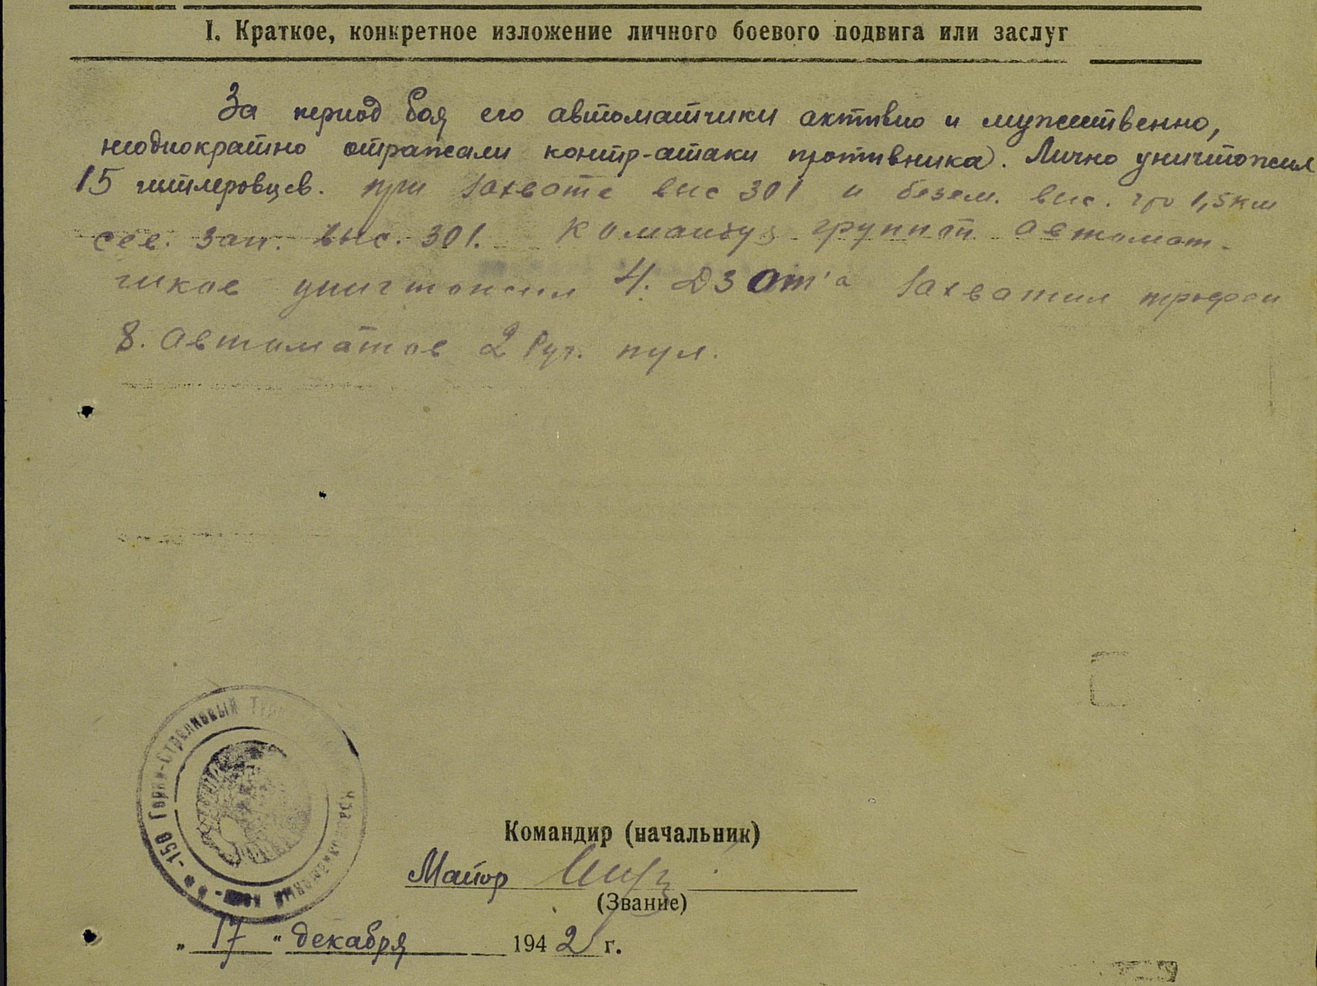 I. Краткое, конкретное изложение личного боевого подвига или заслуг
За период боя его автоматчики активно и мужественно,
неоднократно отражали контр-атаки противника. Лично уничтожил
15 гитлеровцев. при захвате выс 301 и безем. выс. 1,5 км
сев. зап. выс. 301. Командуя группой автомат-
чиков уничтожил 4. ДЗОТ'а захватил трофеи
8. Автоматов 2 Руч. пул.
150 Горно-Стрелковый
Командир (начальник)
Майор
(Звание)
„ 17 “ декабря 1942 г.